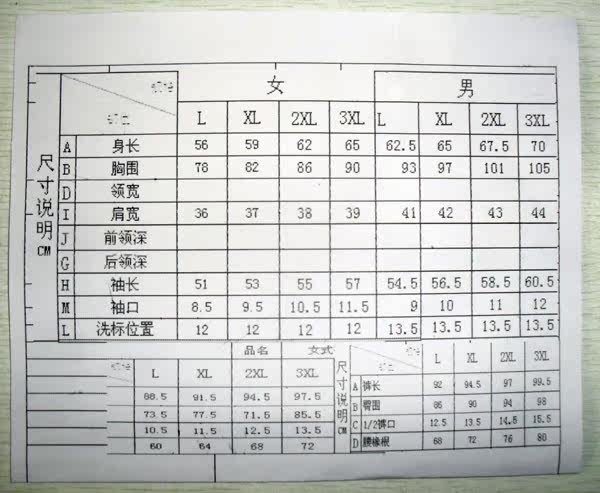 女 男
L XL 2XL 3XL L XL 2XL 3XL
尺寸说明CM
A 身长 56 59 62 65 62.5 65 67.5 70
B 胸围 78 82 86 90 93 97 101 105
D 领宽
I 肩宽 36 37 38 39 41 42 43 44
J 前领深
G 后领深
H 袖长 51 53 55 57 54.5 56.5 58.5 60.5
M 袖口 8.5 9.5 10.5 11.5 9 10 11 12
L 洗标位置 12 12 12 12 13.5 13.5 13.5 13.5
品名 女式
L XL 2XL 3XL
91.5 94.5 97.5
73.5 77.5 71.5 85.5
10.5 11.5 12.5 13.5
60 64 68 72
尺寸说明CM
L XL 2XL 3XL
A 裤长 92 94.5 97 99.5
B 臀围 86 90 94 98
C 1/2裤口 12.5 13.5 14.5 15.5
D 腰橡根 68 72 76 80